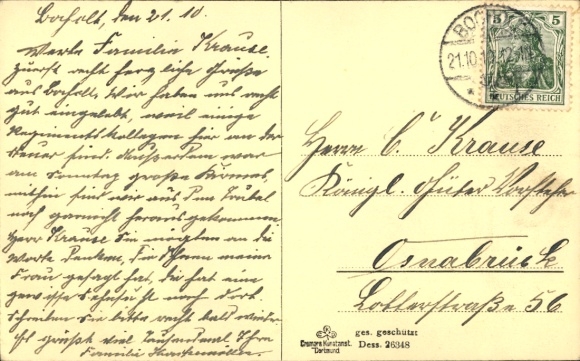 Bocholt, den 21. 10.
Werte Familie Krause
zuerst recht herzliche Grüße
aus Bocholt, Wir haben uns recht
gut eingelebt, weil einige
Regimentskollegen hier an der
Steuer sind. Außerdem war
am Sonntag große Kirmes,
mithin sind wir aus dem Trubel
noch garnicht herausgekommen
Herr Krause Sie möchten an die
Worte denken, die Ihnen meine
Frau gesagt hat, die hat eine
gewisse Sehnsucht nach dort.
Schreiben Sie bitte recht bald wieder
Es grüßt viel Tausendmal Ihre
Familie
BOCHOLT
21.10
5 5
DEUTSCHES REICH
Herrn C. Krause
Königl. Güter Vorsteher
Osnabrück
Lotterstraße 56
Cramers Kunstanst.
Dortmund
ges. geschützt
Dess. 26348